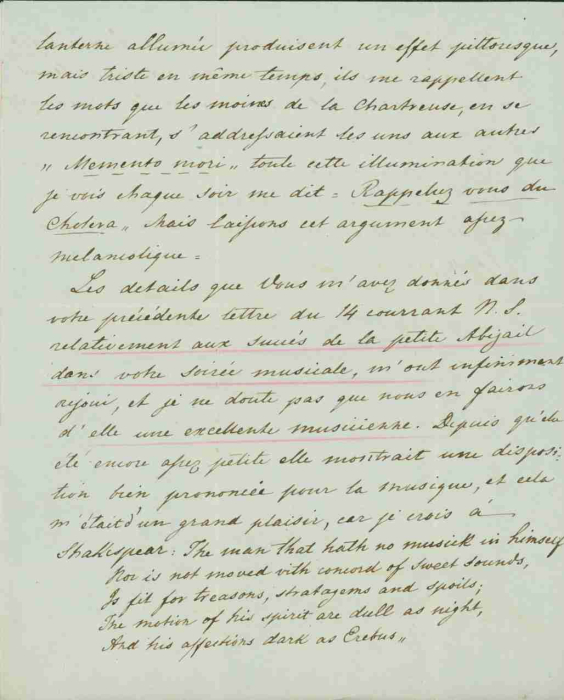 lanterne allumée produisent un effet pittoresque,
mais triste en même temps, ils me rappellent
les mots que les moines de la Chartreuse, en se
rencontrant, s'addressaient les uns aux autres
„ Memento mori „ toute cette illumination que
je vois chaque soir me dit = Rappelez vous du
Cholera „ Mais laissons cet argument assez
melancolique =
Les details que Vous m'avez donnés dans
votre précédente lettre du 14 courrant N. S.
relativement aux succés de la petite Abijail
dans votre soirée musicale, m'ont infiniment
rejoui, et je ne doute pas que nous en fairons
d'elle une excellente musicienne. Depuis qu'elle
été encore assez petite elle montrait une disposi:
tion bien prononcée pour la musique, et cela
m'était d'un grand plaisir, car je crois à
Shakespear: The man that hath no musick in himself
Nor is not moved vith concord of sweet sounds,
Is fit for treasons, stratagems and spoils;
The motion of his spirit are dull as night,
And his affections dark as Erebus „